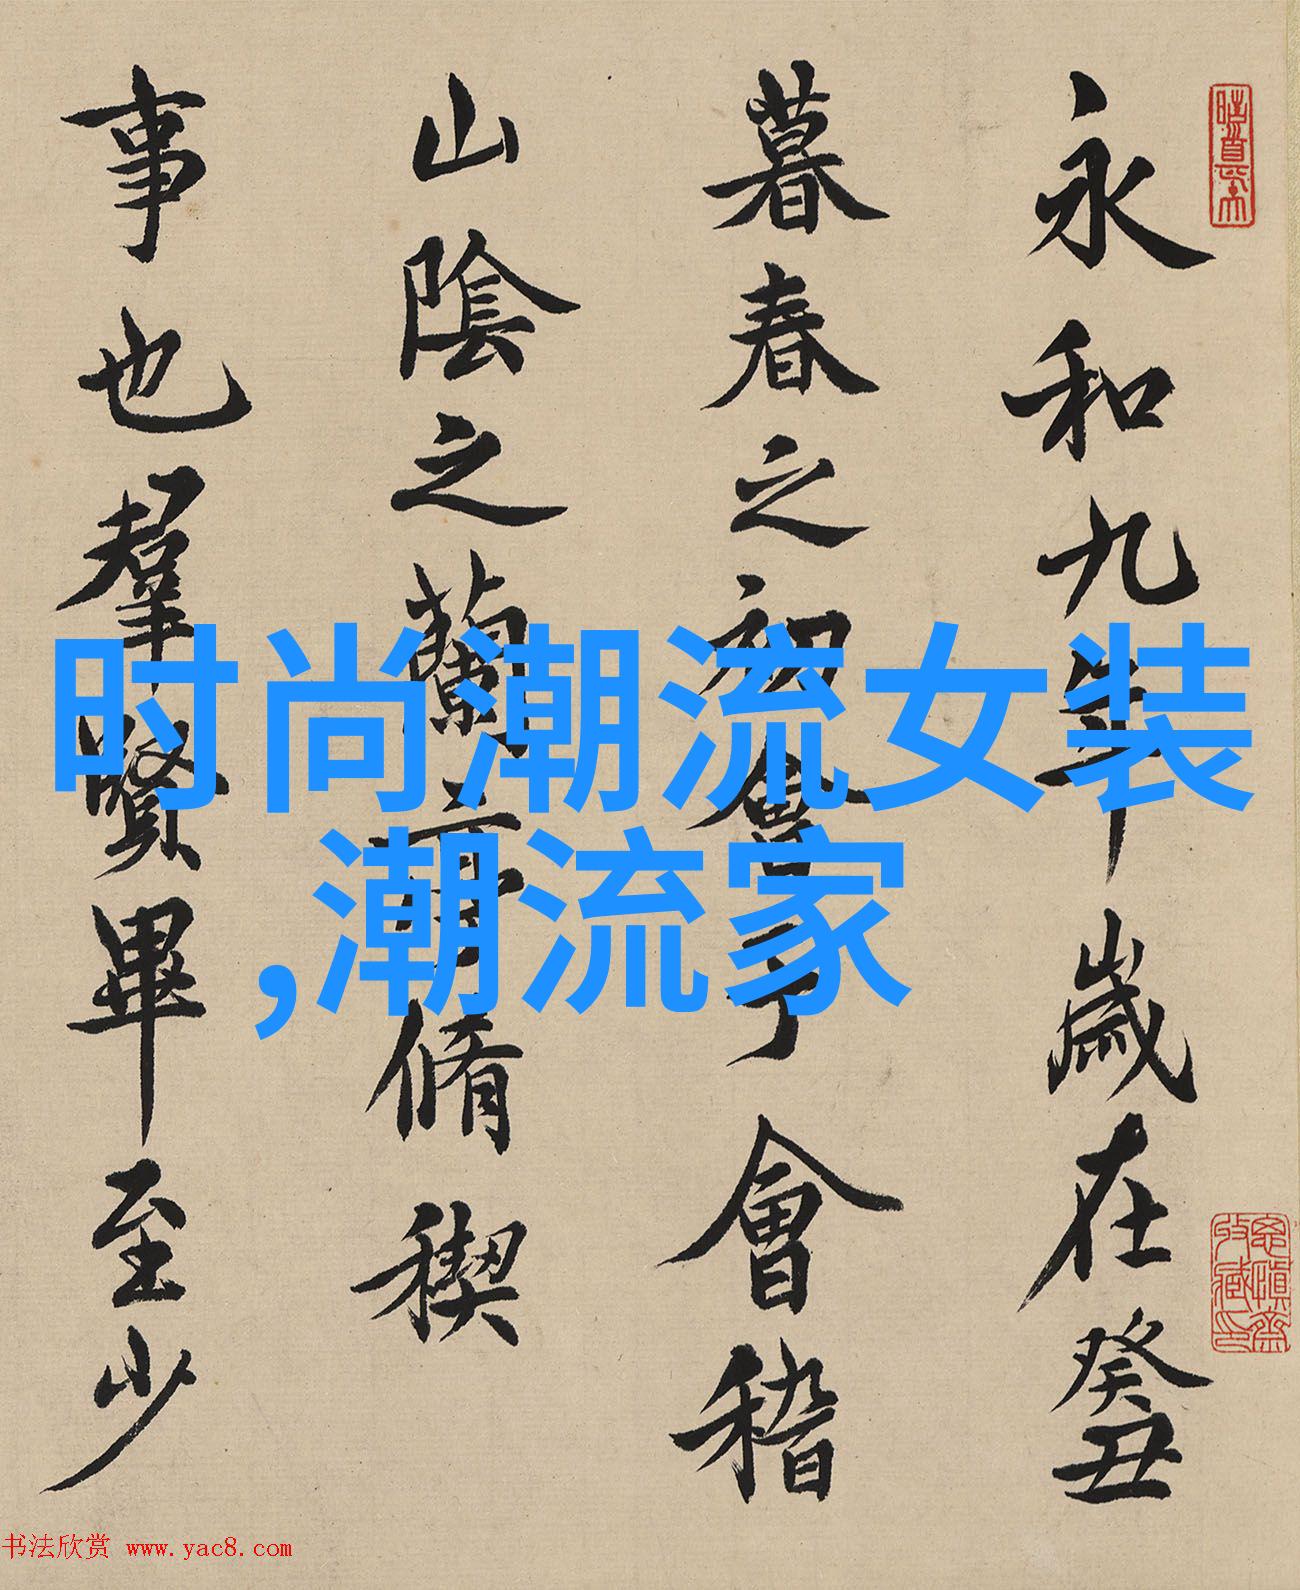 永和九年歲在癸丑
暮春之初會于會稽
山陰之蘭亭脩稧
事也羣賢畢至少
时尚潮流女装
,潮流家
书法欣赏 www.yac8.com